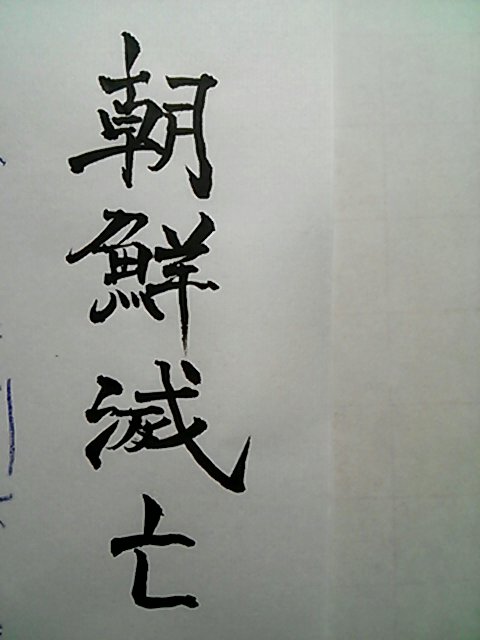 朝鮮滅亡